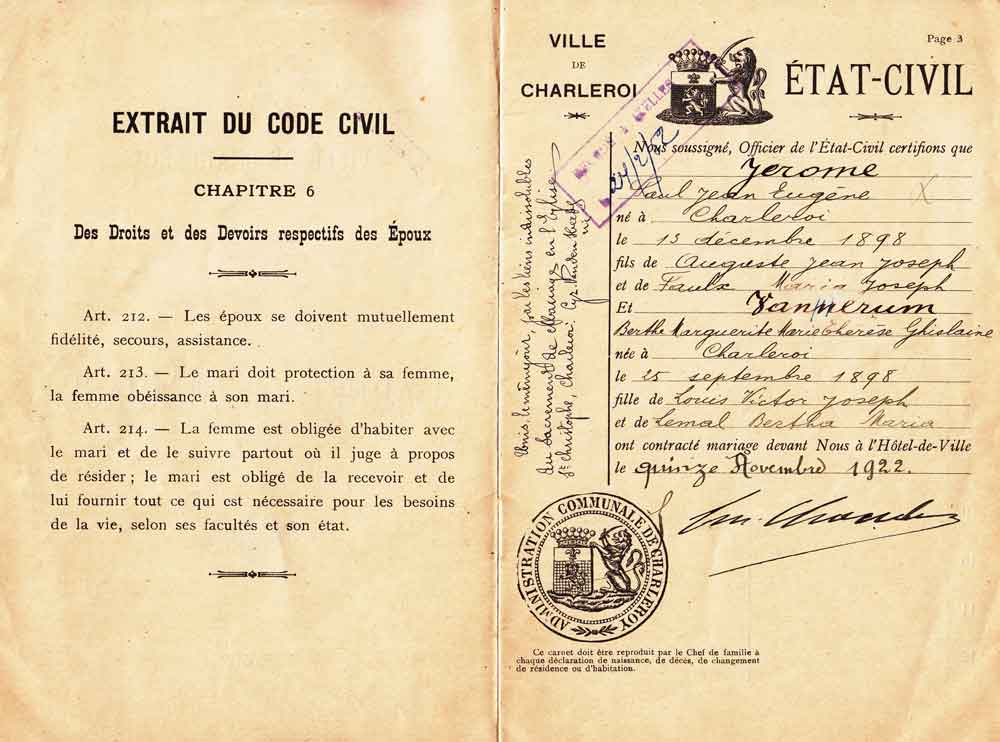 EXTRAIT DU CODE CIVIL
CHAPITRE 6
Des Droits et des Devoirs respectifs des Époux
Art. 212. — Les époux se doivent mutuellement
fidélité, secours, assistance.
Art. 213. — Le mari doit protection à sa femme,
la femme obéissance à son mari.
Art. 214. — La femme est obligée d'habiter avec
le mari et de le suivre partout où il juge à propos
de résider ; le mari est obligé de la recevoir et de
lui fournir tout ce qui est nécessaire pour les besoins
de la vie, selon ses facultés et son état.
Page 3
VILLE
DE
CHARLEROI
ÉTAT-CIVIL
24/2/2
Nous soussigné, Officier de l'État-Civil certifions que
Jerome
Paul Jean Eugène
né à Charleroi
le 13 décembre 1898
fils de Auguste Jean Joseph
et de Faulx Maria Joseph
Et Vannerum
Berthe Marguerite Marie Thérèse Ghislaine
née à Charleroi
le 25 septembre 1898
fille de Louis Victor Joseph
et de Lemal Bertha Maria
ont contracté mariage devant Nous à l'Hôtel-de-Ville
le quinze Novembre 1922.
Unis, le même jour, par les liens indissolubles
du Sacrement de Mariage en l'Église
St Christophe, Charleroi.
ADMINISTRATION COMMUNALE DE CHARLEROY
Ce carnet doit être reproduit par le Chef de famille à
chaque déclaration de naissance, de décès, de changement
de résidence ou d'habitation.